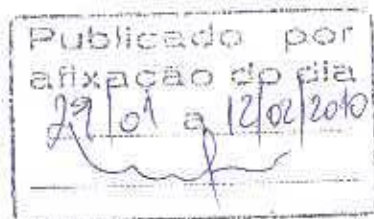 Publicado por
afixação do dia
29/01 a 12/02/2010